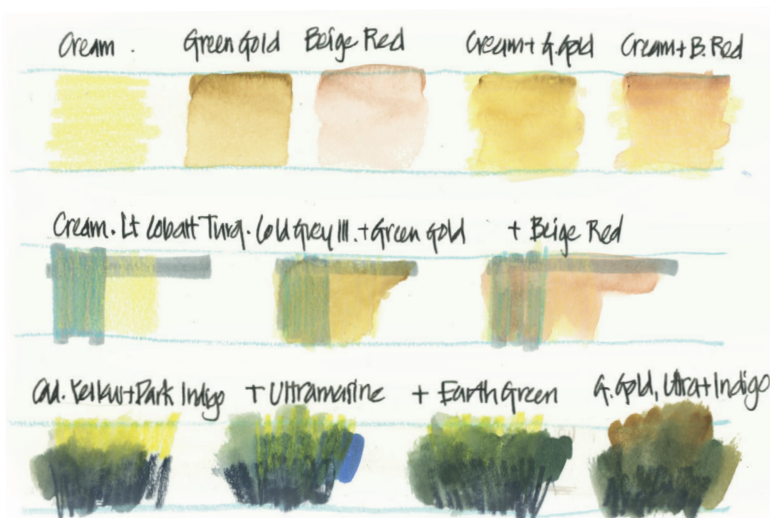 Cream. Green Gold Beige Red Cream + G.Gold Cream + B. Red
Cream. Lt Cobalt Turq. Cold Grey III. + Green Gold + Beige Red
Cad. Yellow + Dark Indigo + Ultramarine + Earth Green G. Gold, Ultra + Indigo